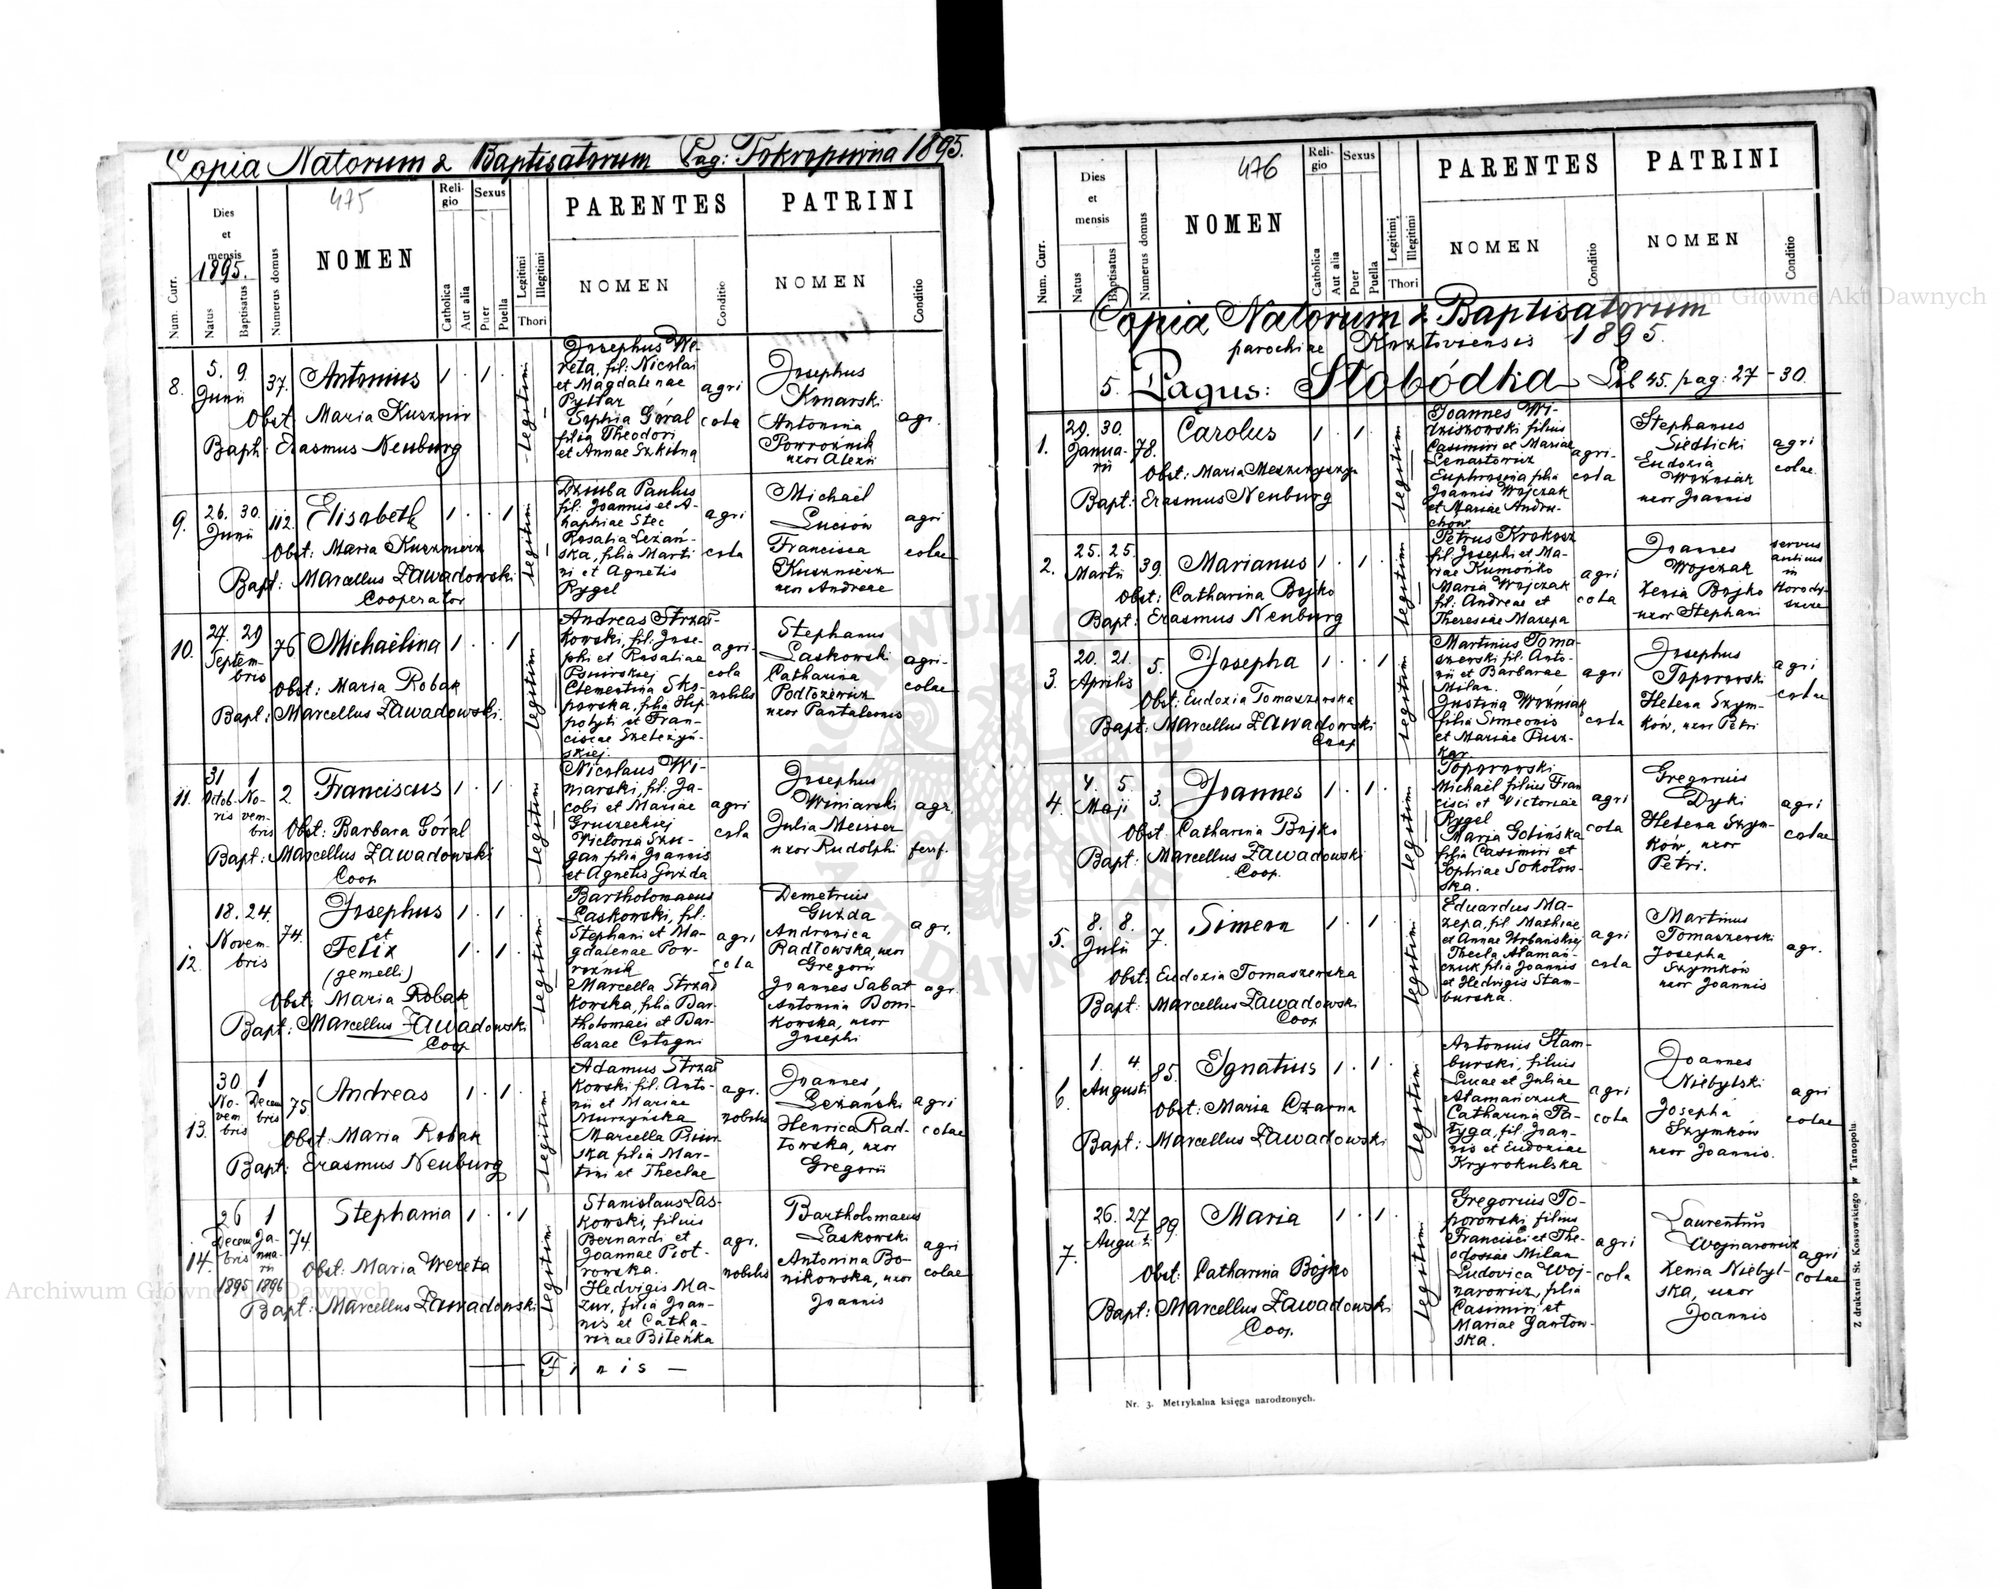 Copia Natorum & Baptisatorum Pag: Pokropiwna 1895.
475
Num. Curr.
Dies
et
mensis
1895.
Natus
Baptisatus
Numerus domus
NOMEN
Reli-
gio
Catholica
Aut alia
Sexus
Puer
Puella
Legitimi
Illegitimi
Thori
PARENTES
NOMEN
Conditio
PATRINI
NOMEN
Conditio
8.
5. 9.
Junii
37.
Antonius
1 . 1 .
Obst. Maria Kusznir
Bapt. Erasmus Neuburg
legitimi
Josephus We-
reta, fil: Nicolai
et Magdalenae
Pyllar
Sophia Góral
filia Theodori
et Annae Szkilna
agri
cola
Josephus
Konarski
Antonina
Powroźnik
uxor Alexii
agr.
9.
26. 30.
Junii
112.
Elisabeth
1 . . 1
Obst: Maria Kusznierz
Bapt: Marcellus Zawadowski
Cooperator
legitimi
Dziuba Paulus
fil. Joannis et A-
haphiae Stec
Rosalia Leżań-
ska, filia Marti
ni et Agnetis
Rygel
agri
cola
Michaël
Luciów
Francisca
Kusznierz
uxor Andreae
agri
colae
10.
27. 29
Septem-
bris
76
Michaëlina
1 . . 1
Obst: Maria Robak
Bapt: Marcellus Zawadowski.
legitimi
Andreas Strzał-
kowski, fil: Jose-
phi et Rosaliae
Piwrskiej
Clementina Sko-
powska, filia Hip-
polyti et Fran-
ciscae Szeleżyń-
skiej.
agri-
cola
nobilis
Stephanus
Laskowski
Catharina
Podłozewicz
uxor Pantaleonis
agri-
colae
11.
31 1
Octob- No-
ris vem-
bris
2.
Franciscus
1 . 1 .
Obst: Barbara Góral
Bapt: Marcellus Zawadowski
Coop
legitimi
Nicolaus Wi-
niarski, fil: Ja-
cobi et Mariae
Gruszeckiej
Victoria Szu-
gan filia Joannis
et Agnetis Guzda
agri
cola
Josephus
Winiarski
Julia Meisser
uxor Rudolphi
agr.
ferrf.
12.
18. 24.
Novem-
bris
74.
Josephus
et
Felix
(gemelli)
1 . 1 .
1 . 1 .
Obst: Maria Robak
Bapt: Marcellus Zawadowski
Coop
legitimi
Bartholomaeus
Laskowski, fil:
Stephani et Ma-
gdalenae Pow-
roźnik
Marcella Strzał
kowska, filia Bar-
tholomaei et Bar-
barae Cologni
agri
cola
Demetrius
Guzda
Andronica
Radłowska, uxor
Gregorii
Joannes Sabat
Antonina Boni-
kowska, uxor
Josephi
agr.
agr.
13.
30 1
No- Decem
vem bris
bris
75.
Andreas
1 . 1 .
Obst: Maria Robak
Bapt: Erasmus Neuburg
legitimi
Adamus Strzał
kowski fil. Anto-
nii et Mariae
Murzyńska
Marcella Biur-
ska filia Mar-
tini et Theclae
agr.
nobilis
Joannes,
Leżański
Henrica Rad-
łowska, uxor
Gregorii
agri
colae
14.
26 1
Decem Ja-
bris nua-
rii
1895 1896
74.
Stephania
1 . . 1
Obst: Maria Wereta
Bapt: Marcellus Zawadowski
legitimi
Stanislaus Las-
kowski, filius
Bernardi et
Joannae Piot-
rowska.
Hedvigis Ma-
zur, filia Joan-
nis et Catha-
rinae Bileńka
agr.
nobilis
Bartholomaeus
Laskowski
Antonina Bo-
nikowska, uxor
Joannis
agri
colae
Finis —
476
Num. Curr.
Dies
et
mensis
Natus
Baptisatus
Numerus domus
NOMEN
Reli-
gio
Catholica
Aut alia
Sexus
Puer
Puella
Legitimi
Illegitimi
Thori
PARENTES
NOMEN
Conditio
PATRINI
NOMEN
Conditio
Copia Natorum & Baptisatorum
parochiae Kozłoviensis 1895.
5. Pagus: Słobódka Lib 45. pag: 27-30.
1.
29. 30.
Janua-
rii
78.
Carolus
1 . 1 .
Obst: Maria
Bapt: Erasmus Neuburg
legitimi
Joannes Wi-
dziszowski filius
Casimiri et Mariae
Lenartowicz
Euphrosina filia
Joannis Wojczak
et Mariae Andru-
chów
agri-
cola
Stephanus
Siedlicki
Eudoxia
Woźniak
uxor Joannis
agri
colae.
2.
25. 25.
Martii
39.
Marianus
1 . 1 .
Obst: Catharina Bojko
Bapt: Erasmus Neuburg
legitimi
Petrus Krokosz
fil. Josephi et Ma-
riae Kumońko
Maria Wojczak
fil: Andreae et
Theresiae Mazepa
agri
cola
Joannes
Wojczak
Xenia Bojko
uxor Stephani
servus
aulicus
in
Horody-
szcze
3.
20. 21.
Aprilis
5.
Josepha
1 . . 1
Obst: Eudoxia Tomaszewska
Bapt: Marcellus Zawadowski
Coop
legitimi
Martinus Toma-
szewski fil. Anto-
nii et Barbarae
Milan.
Justina Woźniak
filia Simeonis
et Mariae Pusz-
kar
agri
cola
Josephus
Toporowski
Helena Szym-
ków, uxor Petri
agri
colae
4.
4. 5
Maji
3.
Joannes
1 . 1 .
Obst. Catharina Bojko
Bapt: Marcellus Zawadowski
Coop.
legitimi
Toporowski
Michaël filius Fran
cisci et Victoriae
Rygel
Maria Golińska
filia Casimiri et
Sophiae Sokołow-
ska.
agri
cola
Gregorius
Dyki
Helena Szym-
ków, uxor
Petri.
agri
colae
5.
8. 8.
Julii
7.
Simeon
1 . 1 .
Obst: Eudoxia Tomaszewska
Bapt: Marcellus Zawadowski
Coop
legitimi
Eduardus Ma-
zepa, fil Mathiae
et Annae Urbańskiej
Thecla Ataman-
czuk filia Joannis
et Hedvigis Stam-
burska.
agri
cola
Martinus
Tomaszewski
Josepha
Szymków
uxor Joannis
agr.
6.
1. 4.
Augusti
85.
Ignatius
1 . 1 .
Obst: Maria Czarna
Bapt: Marcellus Zawadowski
legitimi
Antonius Stam-
burski, filius
Lucae et Juliae
Atamańczuk
Catharina Pa-
tyga, fil. Joan-
nis et Eudoxiae
Krywokulska
agri
cola
Joannes
Niebylski
Josepha
Szymków
uxor Joannis.
agri
colae
7.
26. 27
Augusti
89.
Maria
1 . 1 .
Obst: Catharina Bojko
Bapt: Marcellus Zawadowski
Coop.
legitimi
Gregorius To-
porowski filius
Francisci et The-
odosiae Milan
Ludovica Woj-
narowicz, filia
Casimiri et
Mariae Gawłow-
ska.
agri
cola
Laurentius
Wojnarowicz
Xenia Niebyl-
ska, uxor
Joannis
agri
colae
Nr. 3. Metrykalna księga narodzonych.
Z drukarni St. Kossowskiego w Tarnopolu.
Archiwum Główne Akt Dawnych
Archiwum Główne Akt Dawnych
ARCHIWUM GŁÓWNE AKT DAWNYCH